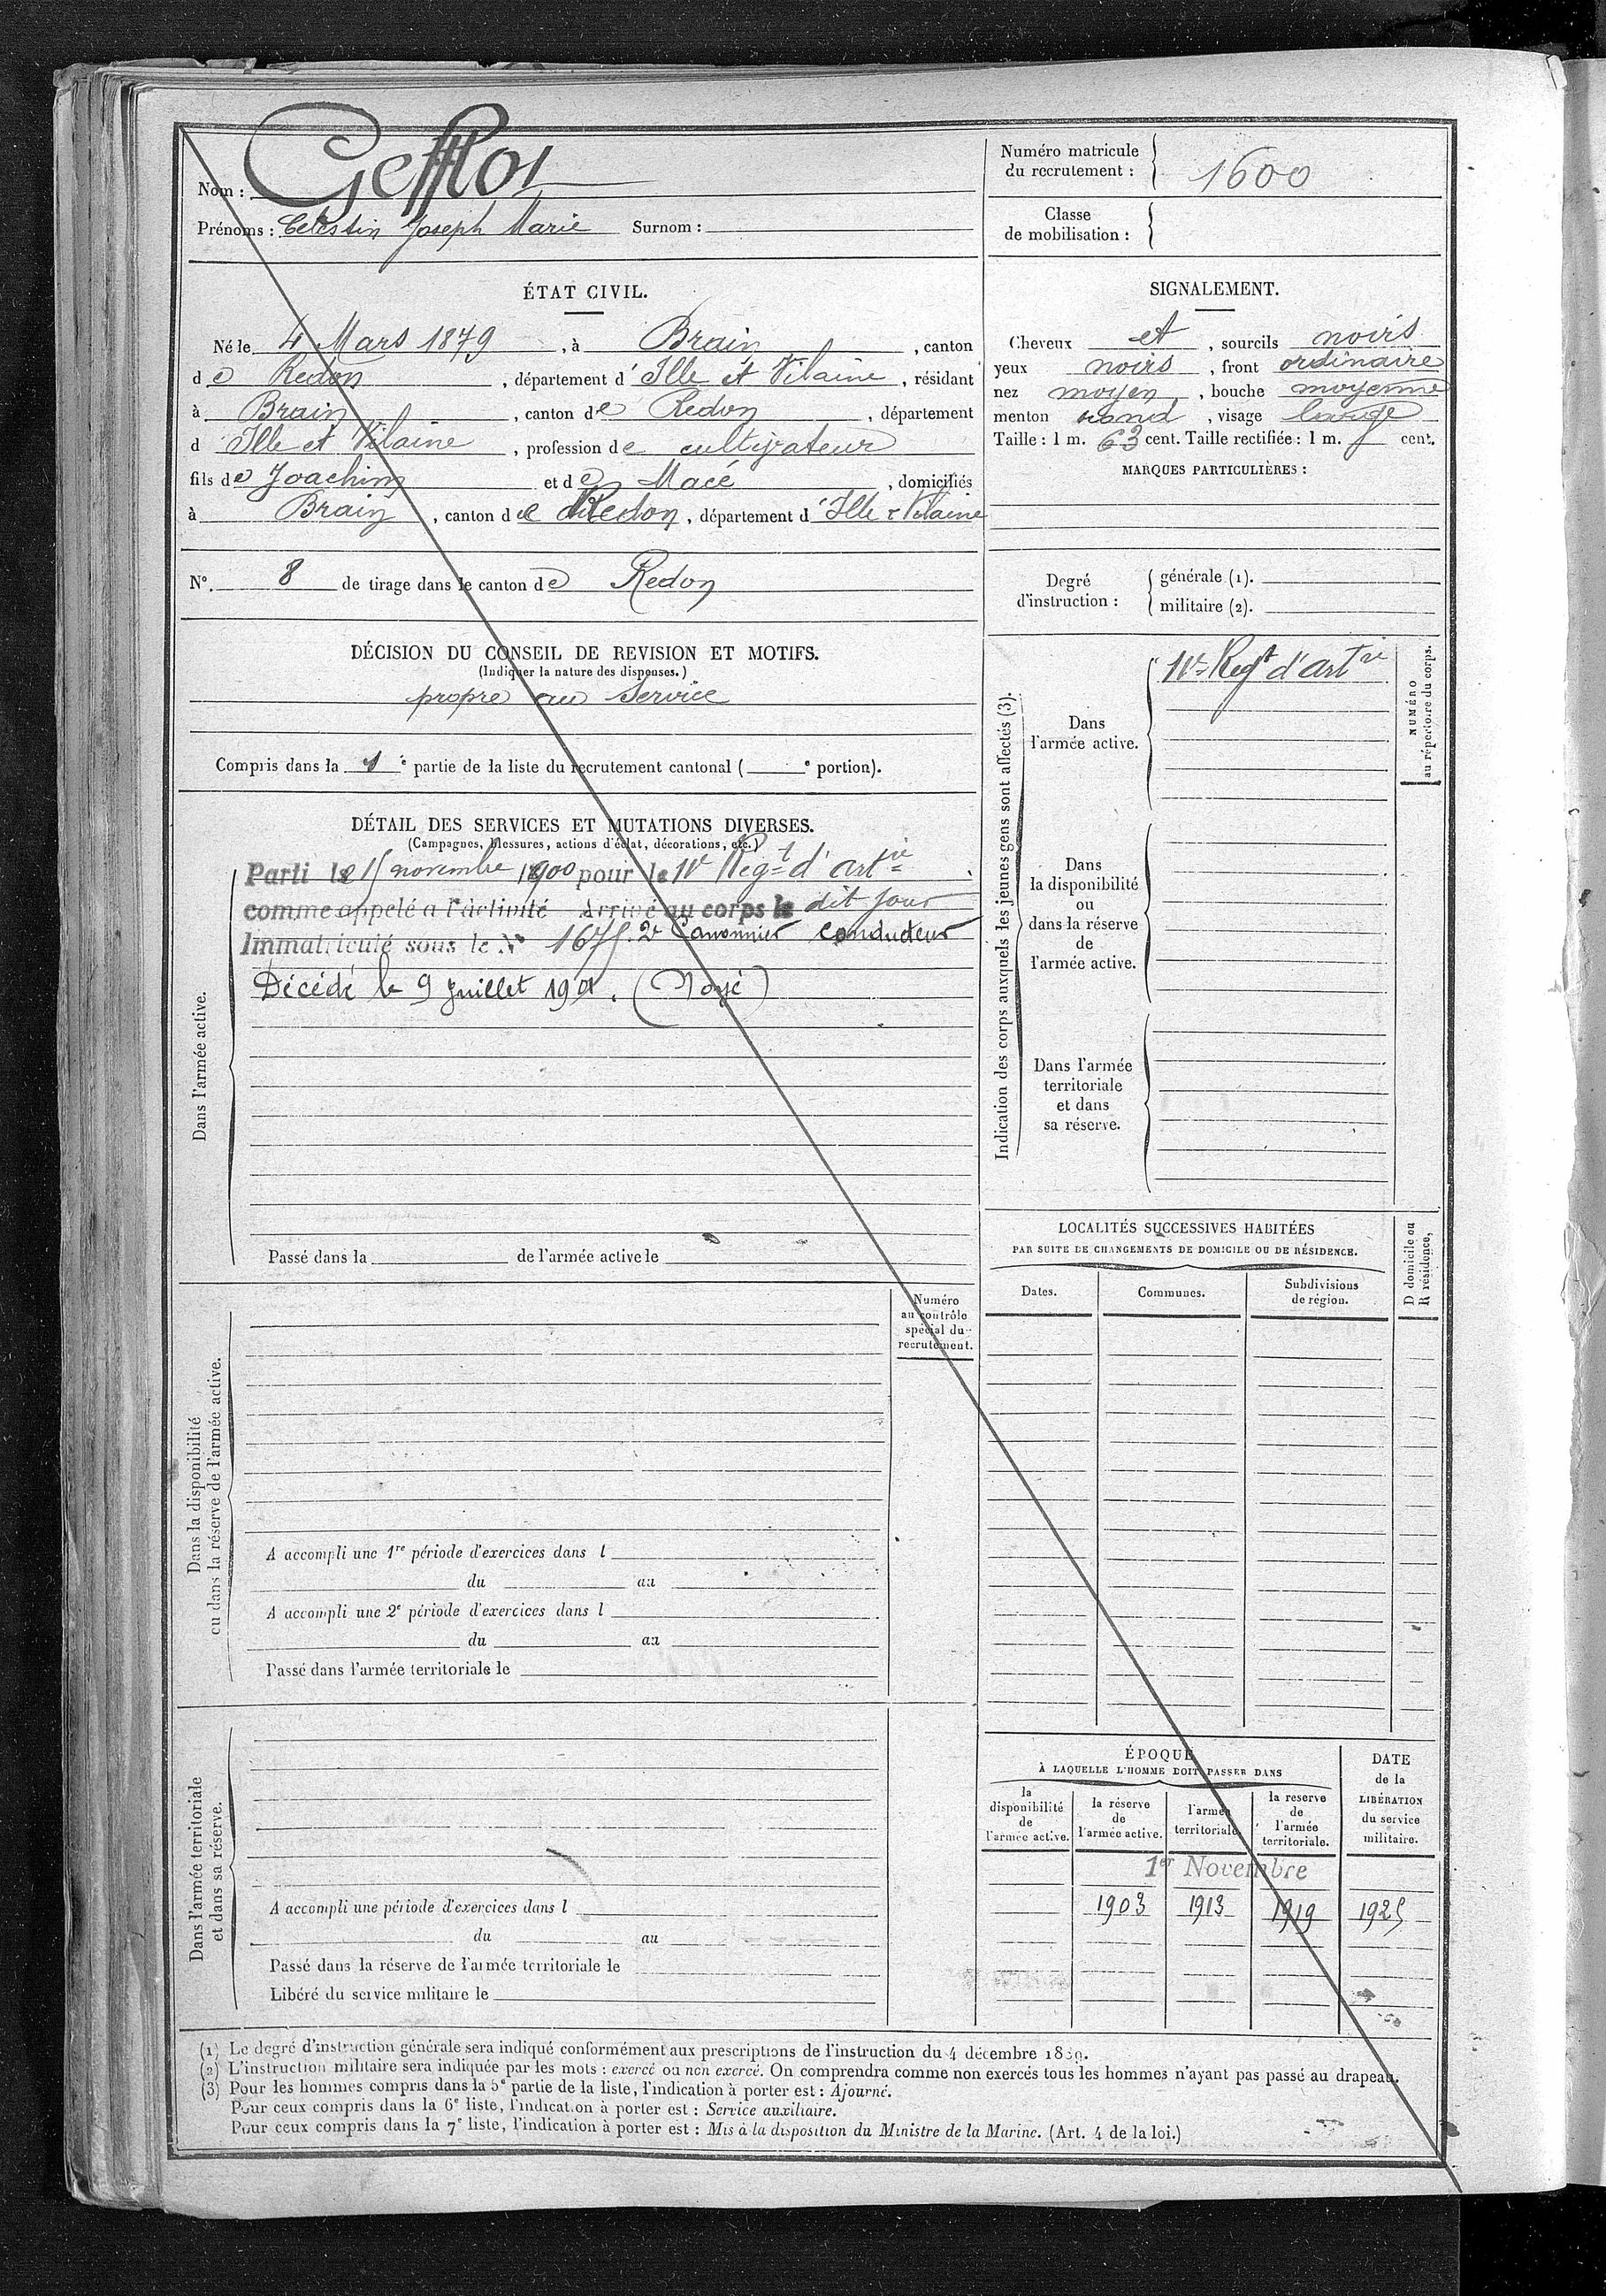 Nom : Gefflot
Prénoms : Célestin Joseph Marie Surnom :
Numéro matricule
du recrutement : 1600
Classe
de mobilisation :
ÉTAT CIVIL.
Né le 4 Mars 1879, à Brain, canton
de Redon, département d'Ille et Vilaine, résidant
à Brain, canton de Redon, département
d'Ille et Vilaine, profession de cultivateur
fils de Joachim et de Macé, domiciliés
à Brain, canton de Redon, département d'Ille & Vilaine
N°. 8 de tirage dans le canton de Redon
SIGNALEMENT.
Cheveux et, sourcils noirs
yeux noirs, front ordinaire
nez moyen, bouche moyenne
menton rond, visage large
Taille : 1 m. 63 cent. Taille rectifiée : 1 m. cent.
MARQUES PARTICULIÈRES :
Degré
d'instruction :
générale (1).
militaire (2).
DÉCISION DU CONSEIL DE REVISION ET MOTIFS.
(Indiquer la nature des dispenses.)
propre au service
Compris dans la 1e partie de la liste du recrutement cantonal ( e portion).
DÉTAIL DES SERVICES ET MUTATIONS DIVERSES.
(Campagnes, blessures, actions d'éclat, décorations, etc.)
Dans l'armée active.
Parti le 15 novembre 1900 pour le Regt d'artie
comme appelé à l'activité Arrivé au corps le dit jour
Immatriculé sous le N° 1675. 2e Canonnier conducteur
Décédé le 9 Juillet 1901. (Noyé)
Passé dans la de l'armée active le
Indication des corps auxquels les jeunes gens sont affectés (3).
Dans
l'armée active.
Regt d'artie
NUMÉRO
au répertoire du corps.
Dans
la disponibilité
ou
dans la réserve
de
l'armée active.
Dans l'armée
territoriale
et dans
sa réserve.
LOCALITÉS SUCCESSIVES HABITÉES
PAR SUITE DE CHANGEMENTS DE DOMICILE OU DE RÉSIDENCE.
Dates.
Communes.
Subdivisions
de région.
D domicile ou
R résidence,
Dans la disponibilité
ou dans la réserve de l'armée active.
Numéro
au contrôle
spécial du
recrutement.
A accompli une 1re période d'exercices dans l
du au
A accompli une 2e période d'exercices dans l
du au
Passé dans l'armée territoriale le
Dans l'armée territoriale
et dans sa réserve.
A accompli une période d'exercices dans l
du au
Passé dans la réserve de l'armée territoriale le
Libéré du service militaire le
ÉPOQUE
À LAQUELLE L'HOMME DOIT PASSER DANS
la
disponibilité
de
l'armée active.
la réserve
de
l'armée active.
l'armée
territoriale
la réserve
de
l'armée
territoriale.
DATE
de la
LIBÉRATION
du service
militaire.
1er Novembre
1903 1913 1919 1925
(1) Le degré d'instruction générale sera indiqué conformément aux prescriptions de l'instruction du 4 décembre 1889.
(2) L'instruction militaire sera indiquée par les mots : exercé ou non exercé. On comprendra comme non exercés tous les hommes n'ayant pas passé au drapeau.
(3) Pour les hommes compris dans la 5e partie de la liste, l'indication à porter est : Ajourné.
Pour ceux compris dans la 6e liste, l'indication à porter est : Service auxiliaire.
Pour ceux compris dans la 7e liste, l'indication à porter est : Mis à la disposition du Ministre de la Marine. (Art. 4 de la loi.)